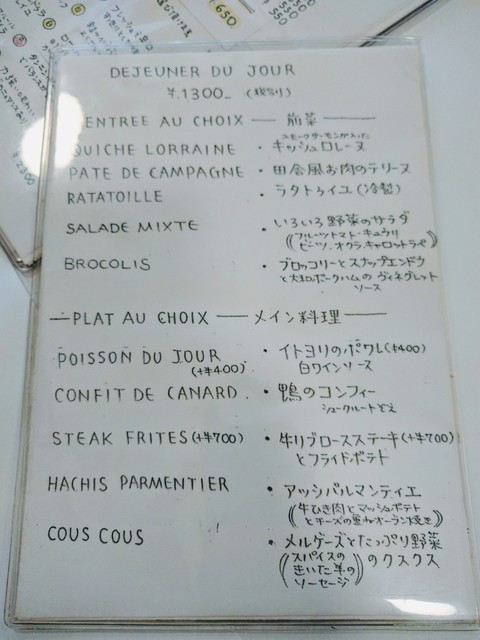 DEJEUNER DU JOUR
¥.1300- (税別)
ENTREE AU CHOIX — 前菜 —
スモークサーモンが入った
QUICHE LORRAINE ・キッシュロレーヌ
PATE DE CAMPAGNE ・田舎風お肉のテリーヌ
RATATOILLE ・ラタトゥイユ(冷製)
SALADE MIXTE ・いろいろ野菜のサラダ
(フルーツトマト・キュウリ
ビーツ、オクラ、キャロットラペ)
BROCOLIS ・ブロッコリーとスナップエンドウ
と大和ポークハムのヴィネグレット
ソース
—PLAT AU CHOIX — メイン料理 —
POISSON DU JOUR ・イトヨリのポワレ(+400)
(+¥400) 白ワインソース
CONFIT DE CANARD. ・鴨のコンフィー
シュークルートぞえ
STEAK FRITES(+¥700) ・牛リブロースステーキ(+¥700)
とフライドポテト
HACHIS PARMENTIER ・アッシパルマンティエ
(牛ひき肉とマッシュポテト
とチーズの重ねオーブン焼き)
COUS COUS ・メルゲーズとたっぷり野菜
(スパイスの
きいた羊の
ソーセージ) のクスクス
650
550
¥2300